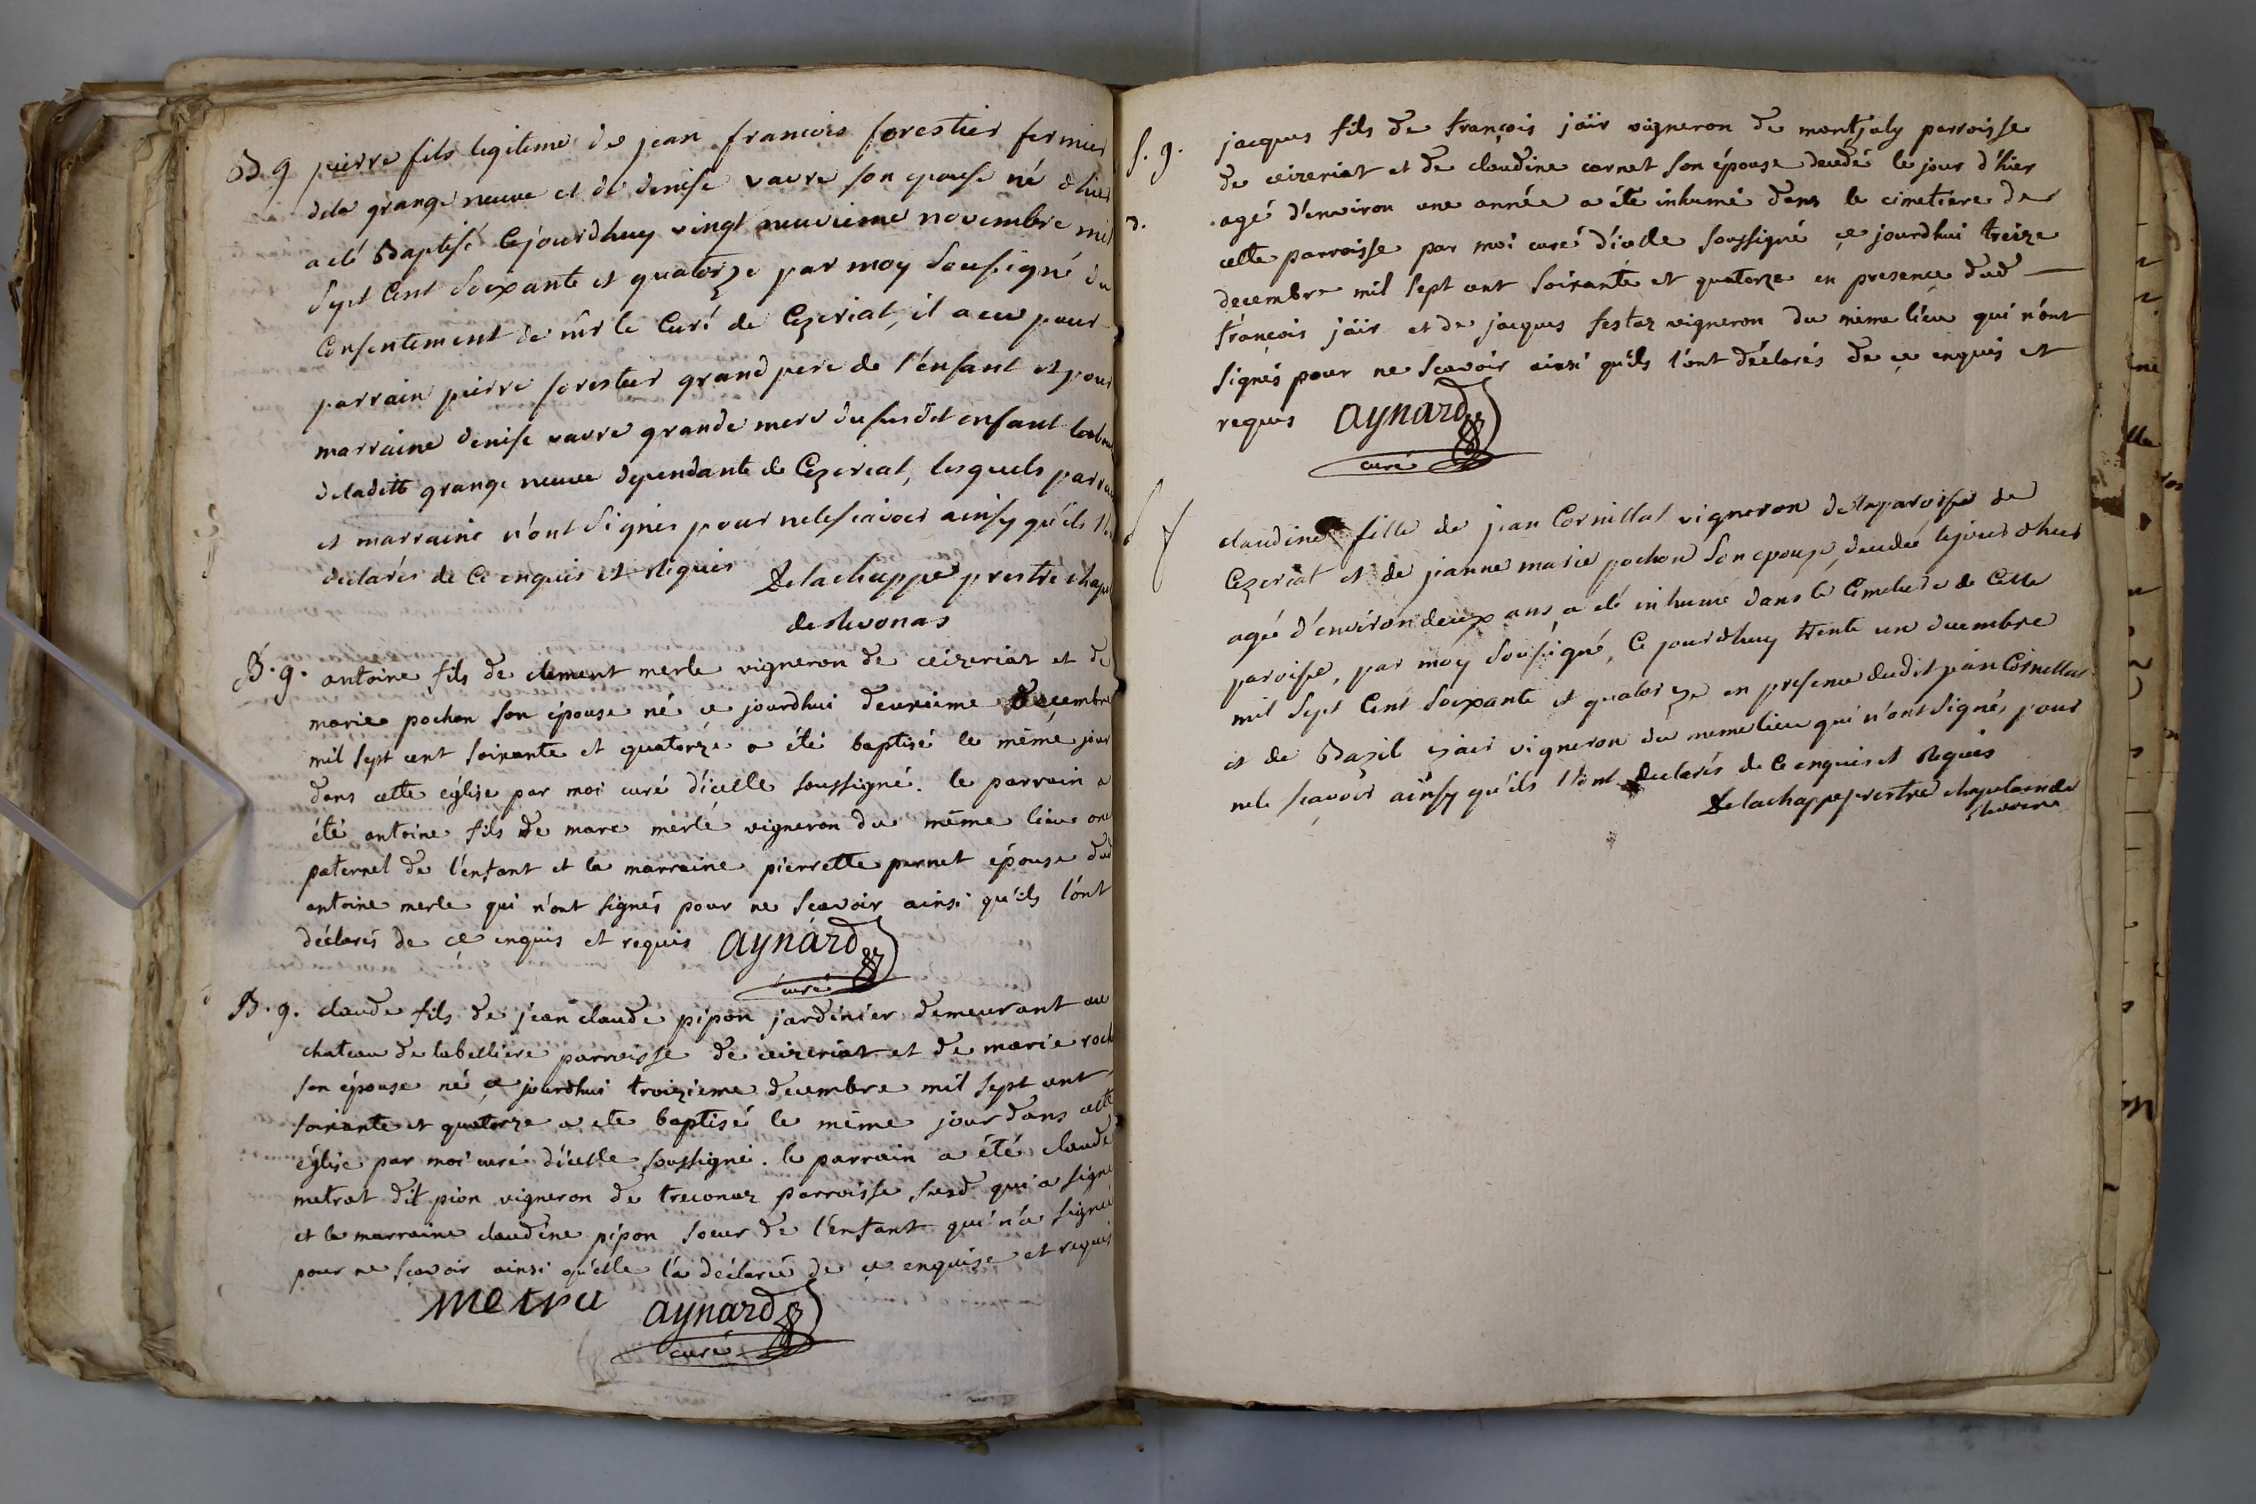 B g pierre fils legitime de jean francois forestier fermier
dela grange neuve et de denise vavre son epouse né d'hier
a été Baptisé Cejourdhuy vingt neuvieme novembre mil
Sept Cent Soixante et quatorze par moy Sousigné du
Consentement de mr le Curé de Cezeriat, il a eu pour
parrain pierre forestier grand pere de l'enfant et pour
marraine denise vavre grande mere du susdit enfant
deladitte grange neuve dependante de Cezeriat, lesquels
et marraine n'ont Signés pour nelesçavoir ainsy qu'ils
declarés de Ce enquis et Requis Delachappe prestre
de Revonas
B. g. antoine fils de clement merle vigneron de ceizeriat et de
marie pochon son épouse né ce jourdhui deuxieme decembre
mil sept cent soixante et quatorze a été baptisé le même jour
dans cette église par moi curé d'icelle soussigné. le parrain a
été antoine fils de marc merle vigneron du même lieu
paternel de l'enfant et la marraine pierrette pernet épouse dud
antoine merle qui n'ont signés pour ne scavoir ainsi qu'ils l'ont
déclarés de ce enquis et requis aynard
curé
B. g. claude fils de jean claude pipon jardinier demeurant au
chateau de labelliere parroisse de ceizeriat et de marie roch
son épouse né ce jourdhui troizieme decembre mil sept cent
soixante et quatorze a ete baptisé le même jour dans cette
église par moi curé d'icelle soussigné. le parrain a été claude
metrat dit pion vigneron de treconaz parroisse susd qui a signé
et la marraine claudine pipon soeur de l'enfant qui n'a signée
pour ne scavoir ainsi qu'elle l'a déclarée de ce enquise et requis
metra aynard
curé
S. g. jacques fils de françois jäir vigneron de montjuly parroisse
de ceizeriat et de claudine carnet son épouse decedé le jour d'hier
d. agé d'environ une année a été inhumé dans le cimetiere de
cette parroisse par moi curé d'icelle soussigné ce jourdhui treize
decembre mil sept cent soixante et quatorze en presence dud
françois jäir et de jacques festaz vigneron du même lieu qui n'ont
signés pour ne scavoir ainsi qu'ils l'ont déclarés de ce enquis et
requis aynard
curé
claudine fille de jean Cornillat vigneron de la paroisse de
Cezeriat et de jeanne marie pochon Son epouse, decedée lejour d'hier
agée d'environ deux ans, a eté inhumé dans le Cimetiere de Cette
paroisse, par moy Sousigné, Ce jourdhuy trente un decembre
mil Sept Cent Soixante et quatorze en presence dudit jean Cornillat
et de Bazil vigneron du meme lieu qui n'ont Signés pour
nele sçavoir ainsy qu'ils l'ont declarés de Ce enquis et Requis
Delachappe prestre chapelain de